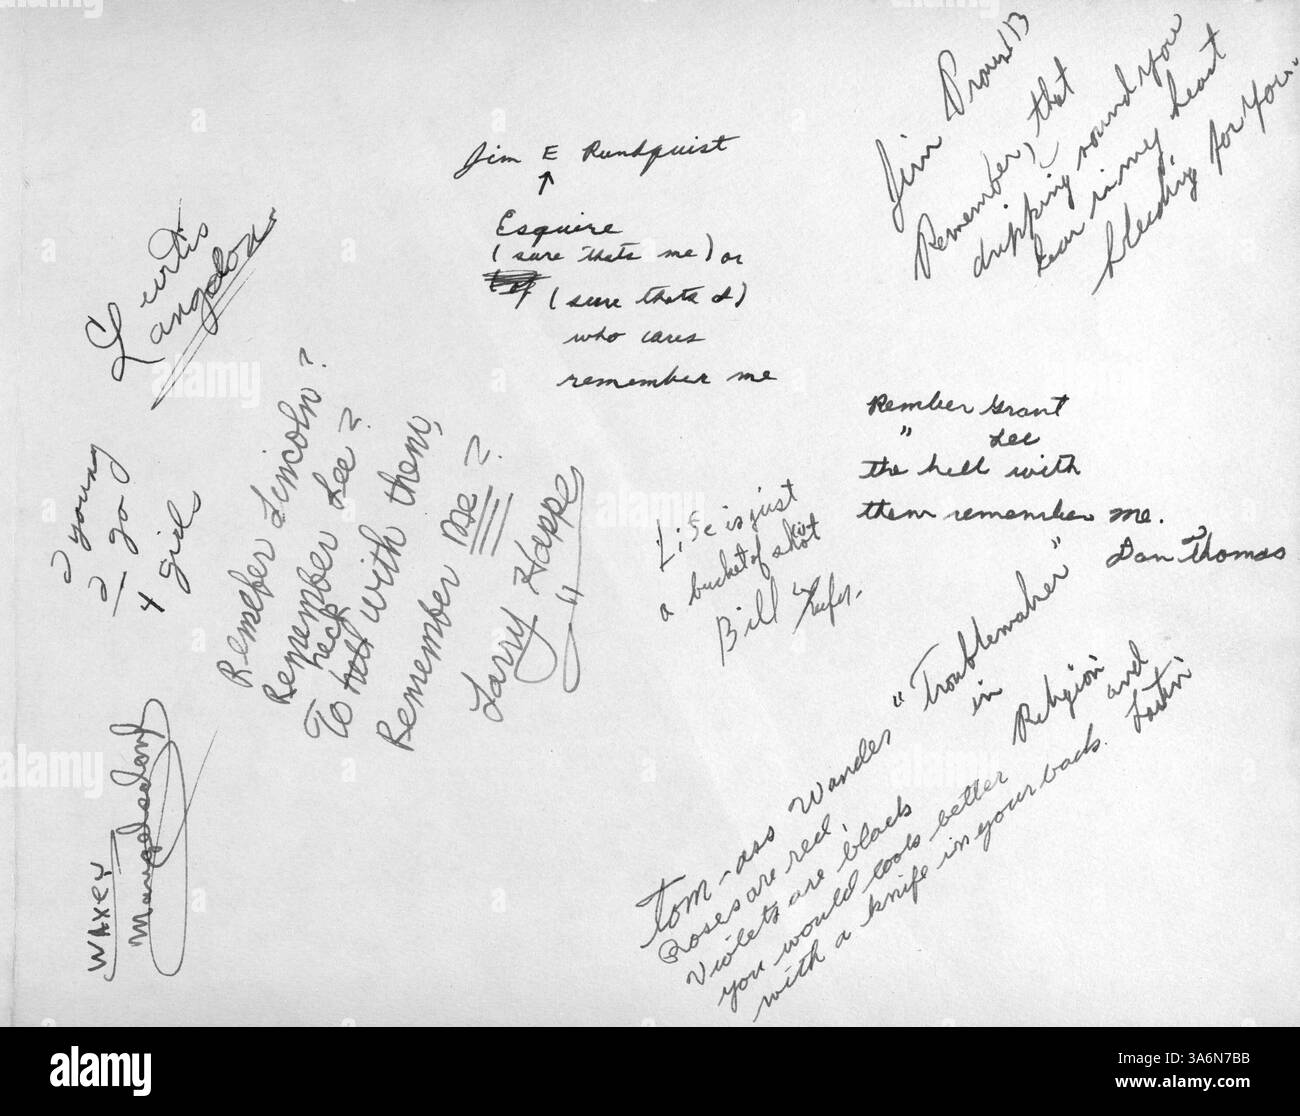 Jim E Rundquist
↑
Esquire
(sure thats me) or
(sure thats I)
who cares
remember me
Jim
Remember, that
dripping round you
hear in my heart
bleeding for you.
Curtis
Langdon
2 young
2 go
4 girl
Remember Lincoln?
Remember Lee?
heck
To hell with them,
Remember me?
Larry Happe
Rember Grant
" Lee
the hell with
them remember me.
Dan Thomas
Life is just
a bucket of
Bill
Tom-ass Wandes "Troublemaker"
in
Religion and
Latin
Roses are red,
Violets are black
you would look better
with a knife in your back.
WAXEY
alamy
Image ID: 3A6N7BB
www.alamy.com